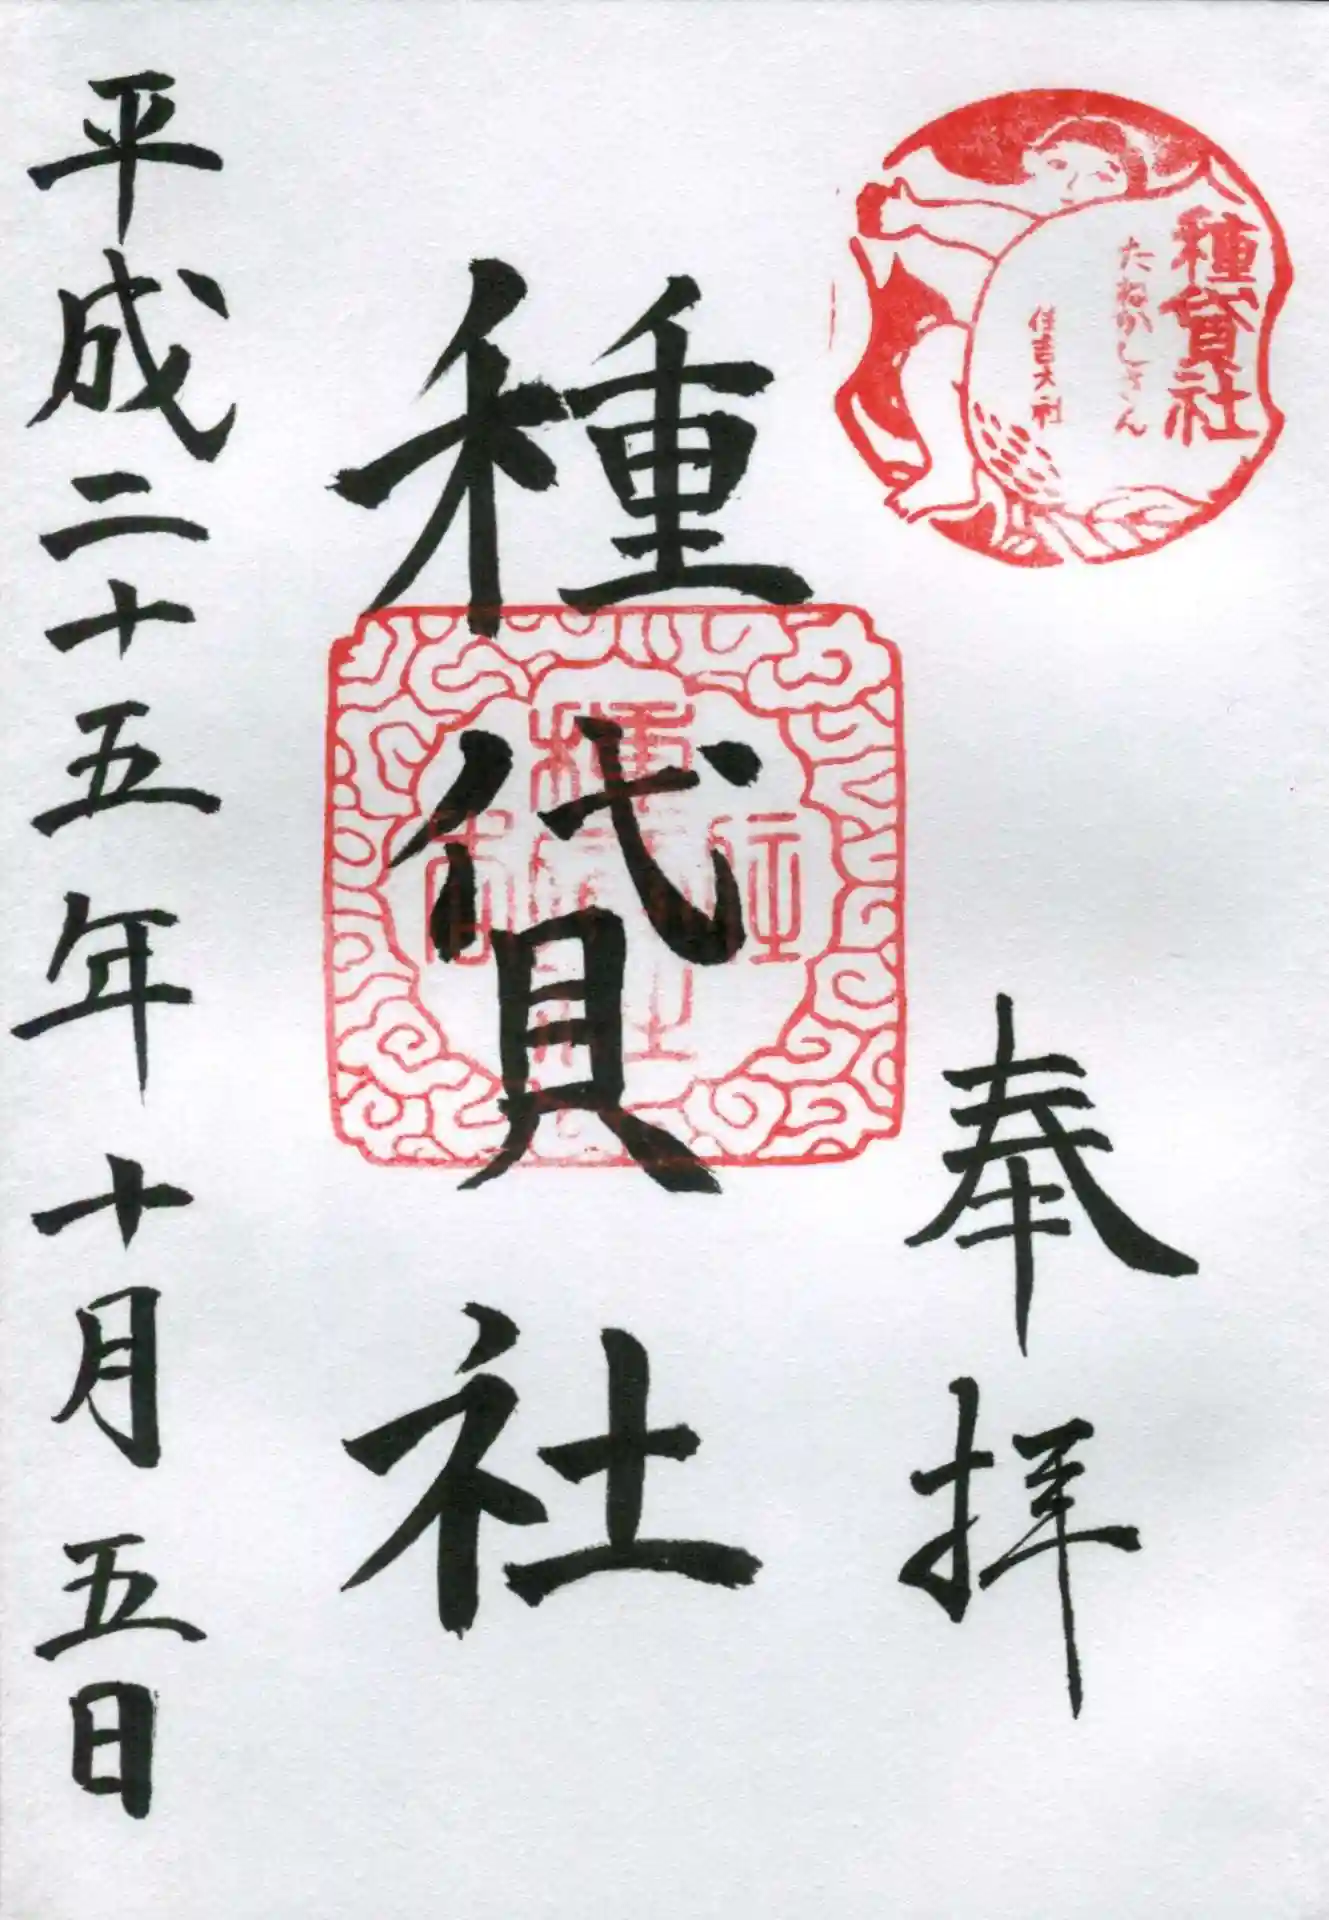 種貸社
たねかしさん
住吉大社
奉拝
種貸社
平成二十五年十月五日